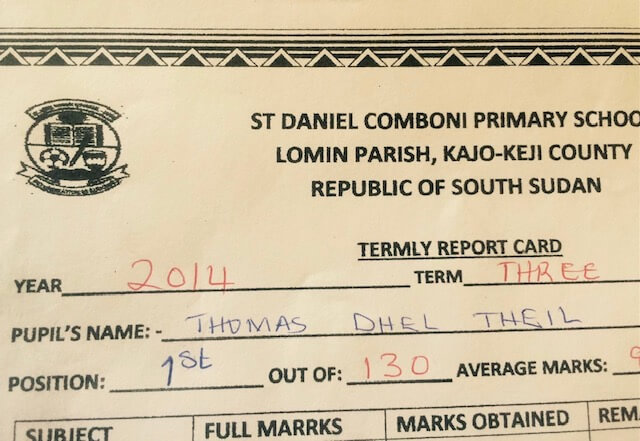 ST DANIEL COMBONI PRIMARY SCHOO
LOMIN PARISH, KAJO-KEJI COUNTY
REPUBLIC OF SOUTH SUDAN
TERMLY REPORT CARD
YEAR 2014 TERM THREE
PUPIL'S NAME: - THOMAS DHEL THEIL
POSITION: 1st OUT OF: 130 AVERAGE MARKS: 9
SUBJECT FULL MARRKS MARKS OBTAINED REM